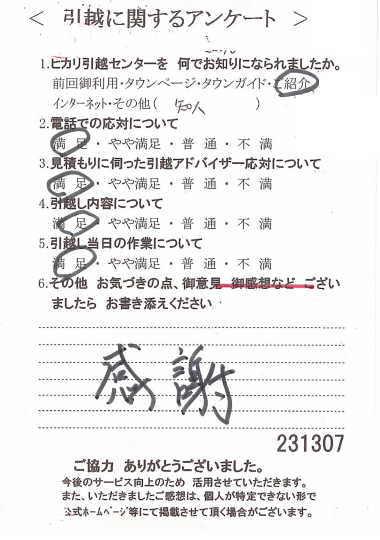 ＜ 引越に関するアンケート ＞
1.ヒカリ引越センターを 何でお知りになられましたか。
前回御利用・タウンページ・タウンガイド・ご紹介
インターネット・その他( 知人 )
2.電話での応対について
満 足・やや満足・普 通・不 満
3.見積もりに伺った引越アドバイザー応対について
満 足・やや満足・普 通・不 満
4.引越し内容について
満 足・やや満足・普 通・不 満
5.引越し当日の作業について
満 足・やや満足・普 通・不 満
6.その他 お気づきの点、御意見 御感想など ござい
ましたら お書き添えください
感謝
231307
ご協力 ありがとうございました。
今後のサービス向上のため 活用させていただきます。
また、いただきましたご感想は、個人が特定できない形で
公式ホームページ等にて掲載させて頂く場合がございます。